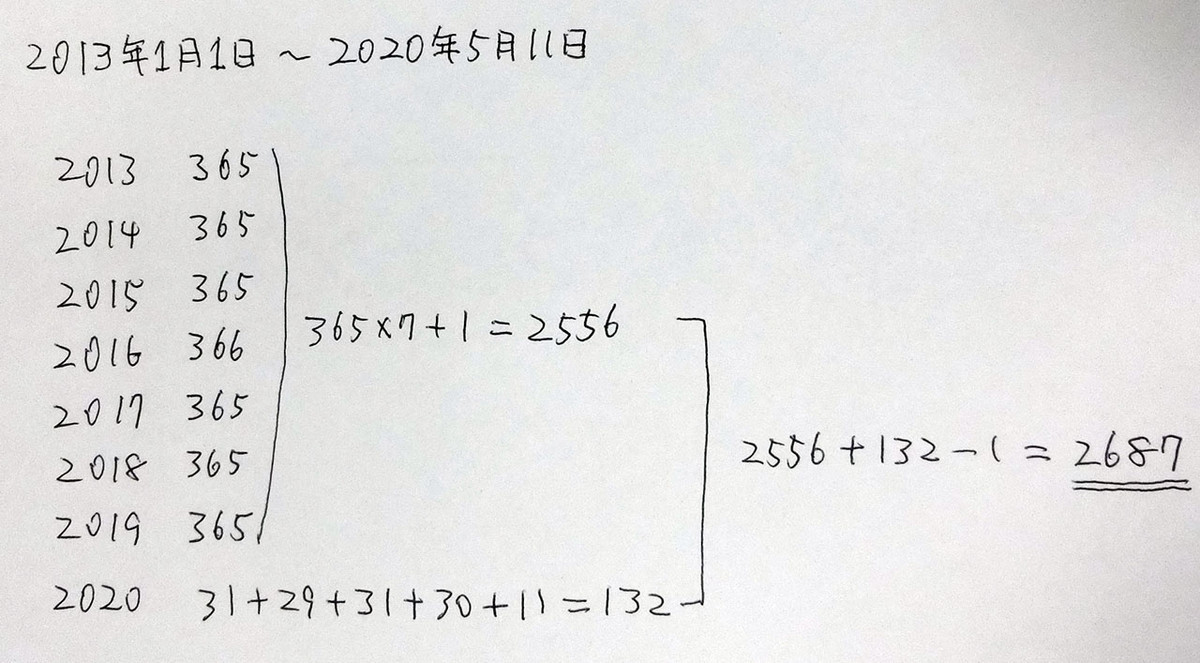 2013年1月1日 ~ 2020年5月11日
2013 365
2014 365
2015 365
2016 366
2017 365
2018 365
2019 365
365×7+1=2556
2020 31+29+31+30+11=132
2556+132-1=2687